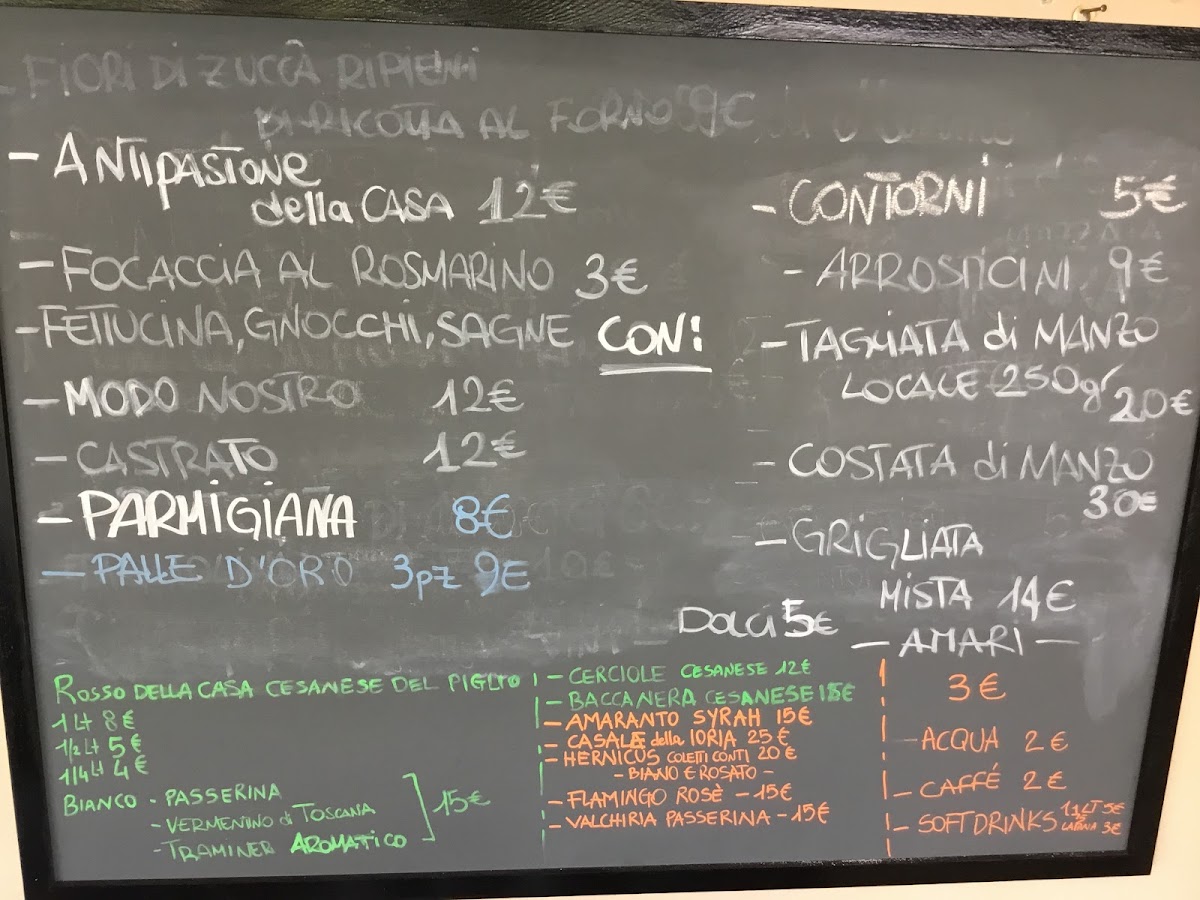 - FIORI DI ZUCCA RIPIENI
DI RICOTTA AL FORNO 9€
- ANTIPASTONE
della CASA 12€
- FOCACCIA AL ROSMARINO 3€
- FETTUCINA, GNOCCHI, SAGNE CON:
- MODO NOSTRO 12€
- CASTRATO 12€
- PARMIGIANA 8€
- PALLE D'ORO 3pz 9€
- CONTORNI 5€
- ARROSTICINI 9€
- TAGLIATA di MANZO
LOCALE 250gr
20€
- COSTATA di MANZO
30€
- GRIGLIATA
MISTA 14€
DOLCI 5€
- AMARI -
3€
- ACQUA 2€
- CAFFÉ 2€
- SOFT DRINKS 1LT 5€
LATTINA 3€
ROSSO DELLA CASA CESANESE DEL PIGLIO
1 Lt 8€
1/2 Lt 5€
1/4 Lt 4€
BIANCO - PASSERINA
- VERMENINO di TOSCANA
- TRAMINER AROMATICO
15€
- CERCIOLE CESANESE 12€
- BACCANERA CESANESE 15€
- AMARANTO SYRAH 15€
- CASALE della IORIA 25€
- HERNICUS COLETTI CONTI 20€
- BIANO E ROSATO -
- FLAMINGO ROSÈ - 15€
- VALCHIRIA PASSERINA - 15€